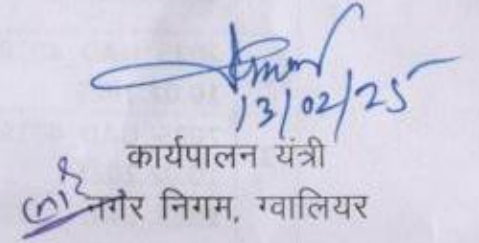 13/02/25
कार्यपालन यंत्री
नगर निगम, ग्वालियर